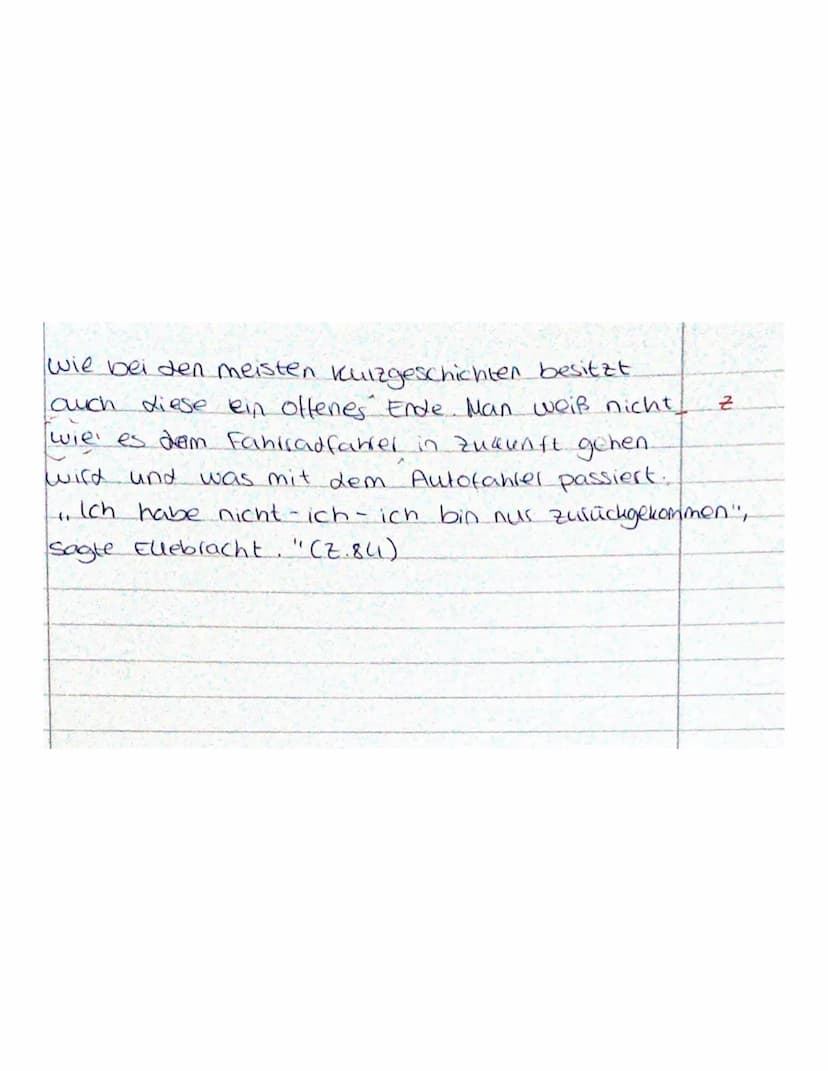 Wie bei den meisten Kurzgeschichten besitzt
auch diese ein offenes Ende. Man weiß nicht Z
wie es dem Fahrradfahrer in Zukunft gehen
wird und was mit dem Autofahrer passiert.
„Ich habe nicht - ich - ich bin nur zurückgekommen",
sagte Ellebracht." (Z.84)